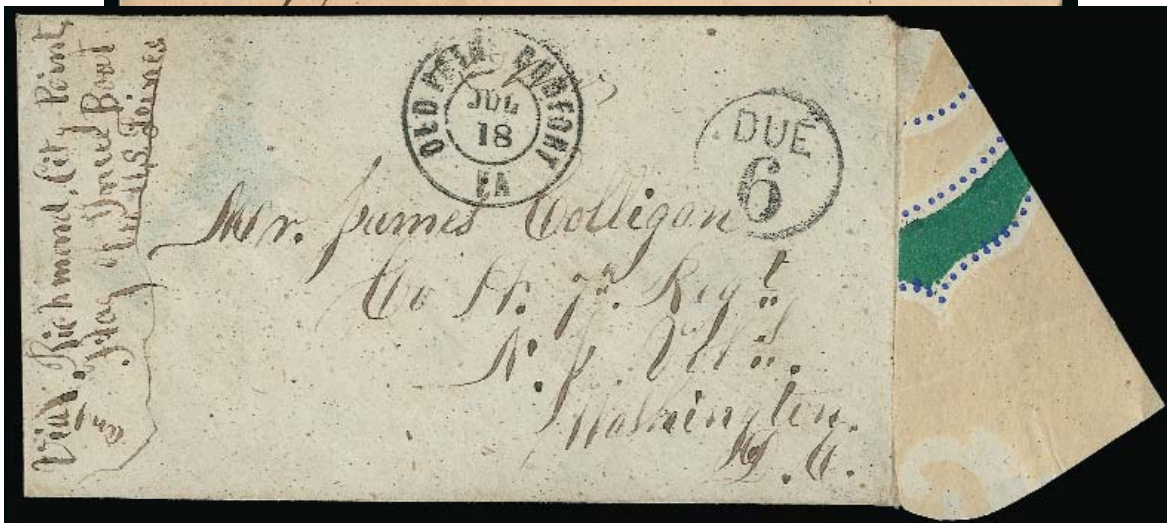 Via. Richmond, City Point
and Flag of Truce Boat
OLD POINT COMFORT
JUL
18
VA
DUE
6
Mr. James Colligan
Co H. 7th. Regt
N. J. Vols.
Washington.
D. C.